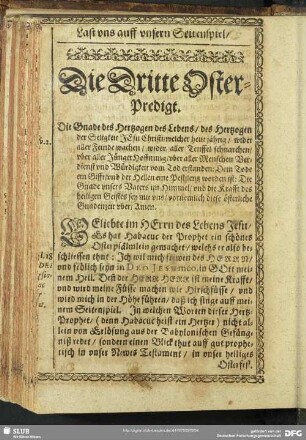 Last vns auff vnsern Seitenspiel/
Die Dritte Oster-
Predigt.
Die Gnade des Hertzogen des Lebens/ des Hertzogen
der Seligkeit JEsu Christi/welcher heut
aller Feinde wachen/ wider aller Teuffel
vber aller Jünger Hoffnung/vber aller Menschen Ver-
dienst vnd Würdigkeit vom Tod erstanden/Dem Tod
ein Gifft vnd der Hellen eine Pestilentz worden ist: Die
Gnade vnsers Vaters im Himmel, vnd die Krafft des
heiligen Geistes sey mit vns/ vornemlich diese österliche
Gnadenzeit vber/ Amen.
GEliebte im HErrn des Lebens Jesu/
Es hat Habacuc der Prophet ein schönes
Osterpsälmlein gemachet/ welches er also be-
schliessen thut: Ich wil mich frewen des HERRN/
vnd frölich seyn in DEO JESU MEO, in GOtt mei-
nem Heil. Deñ der HERR HERR ist meine Krafft/
vnd wird meine Füsse machen wie Hirschfüsse/ vnd
wird mich in der Höhe führen/ daß ich singe auff mei-
nem Seitenspiel. In welchen Worten dieser Hertz-
Prophet/ (denn Habacuc heist ein Hertzer) nicht al-
lein von Erlösung aus der Babylonischen Gefäng-
niß redet/ sondern einen Blick thut auff gut prophe-
tisch in vnser Newes Testament/ in vnser heiliges
Osterfest.
SLUB
Wir führen Wissen.
gefördert von der
Deutschen Forschungsgemeinschaft